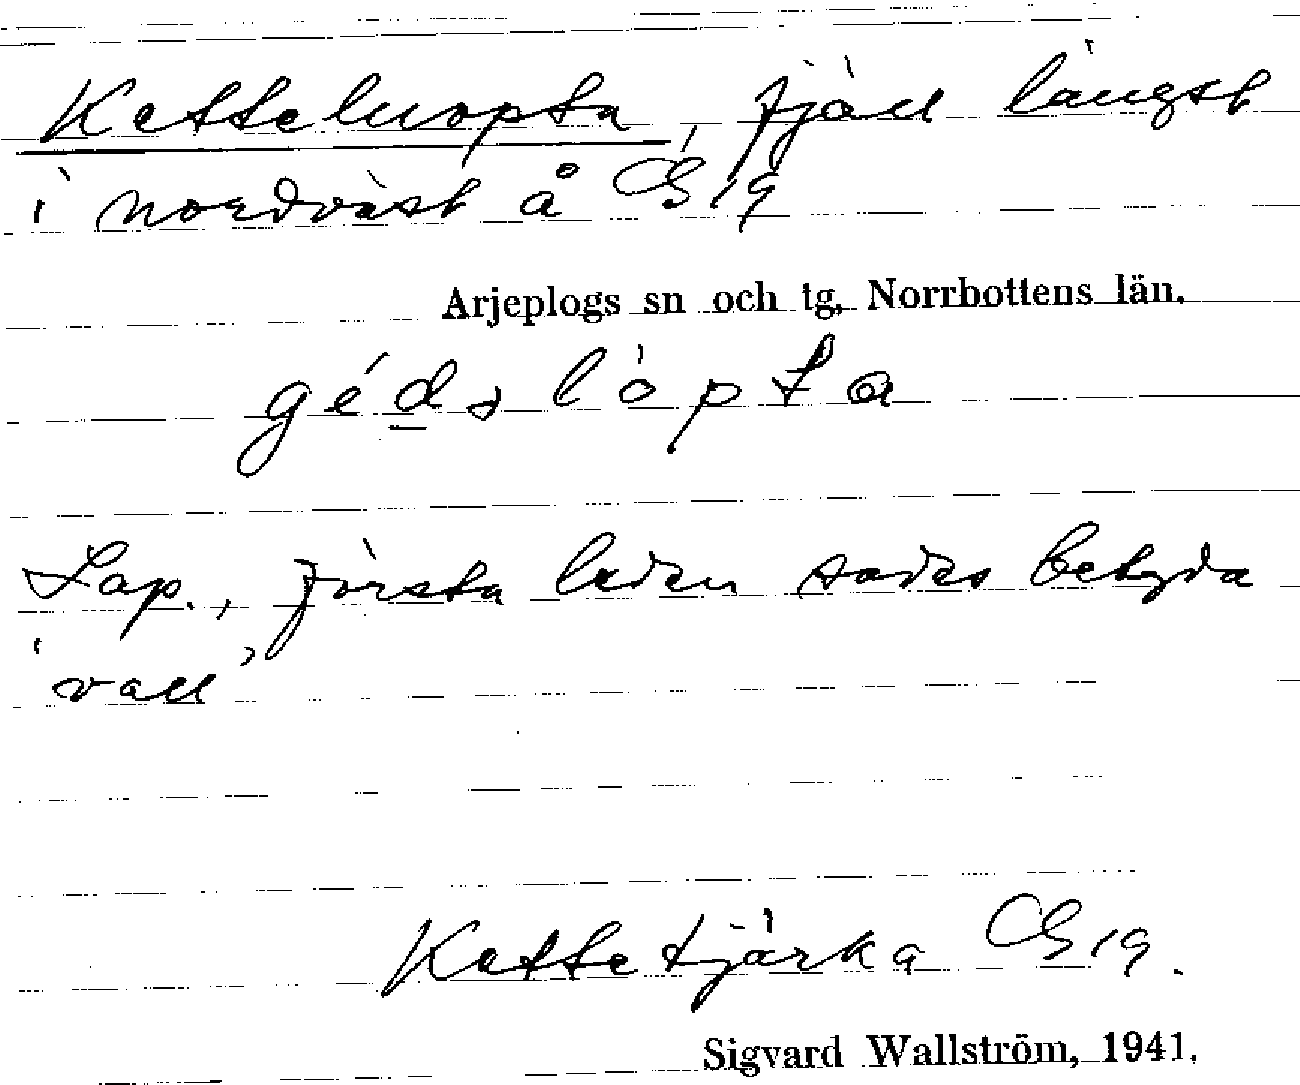 Ketteluopta, fjäll längst
i nordväst å GS 19
Arjeplogs sn och tg, Norrbottens län.
géds lòpta
Lap., första leden sades betyda
'vall'
Kettetjärka GS 19.
Sigvard Wallström, 1941.